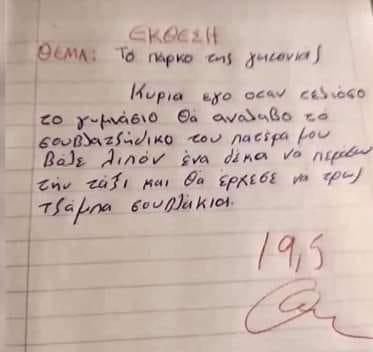 ΕΚΘΕΣΗ
ΘΕΜΑ: Το παρκο της γιτονιας
Κυρια εγο οταν τελιόσο
το γυμνάσιο θα αναλαβο το
σουβλατζίδικο του πατέρα μου
Βάλε λιπόν ένα δέκα να περάσω
την τάξι και θα έρχεσε να τρως
τζάμπα σουβλάκια.
19,5